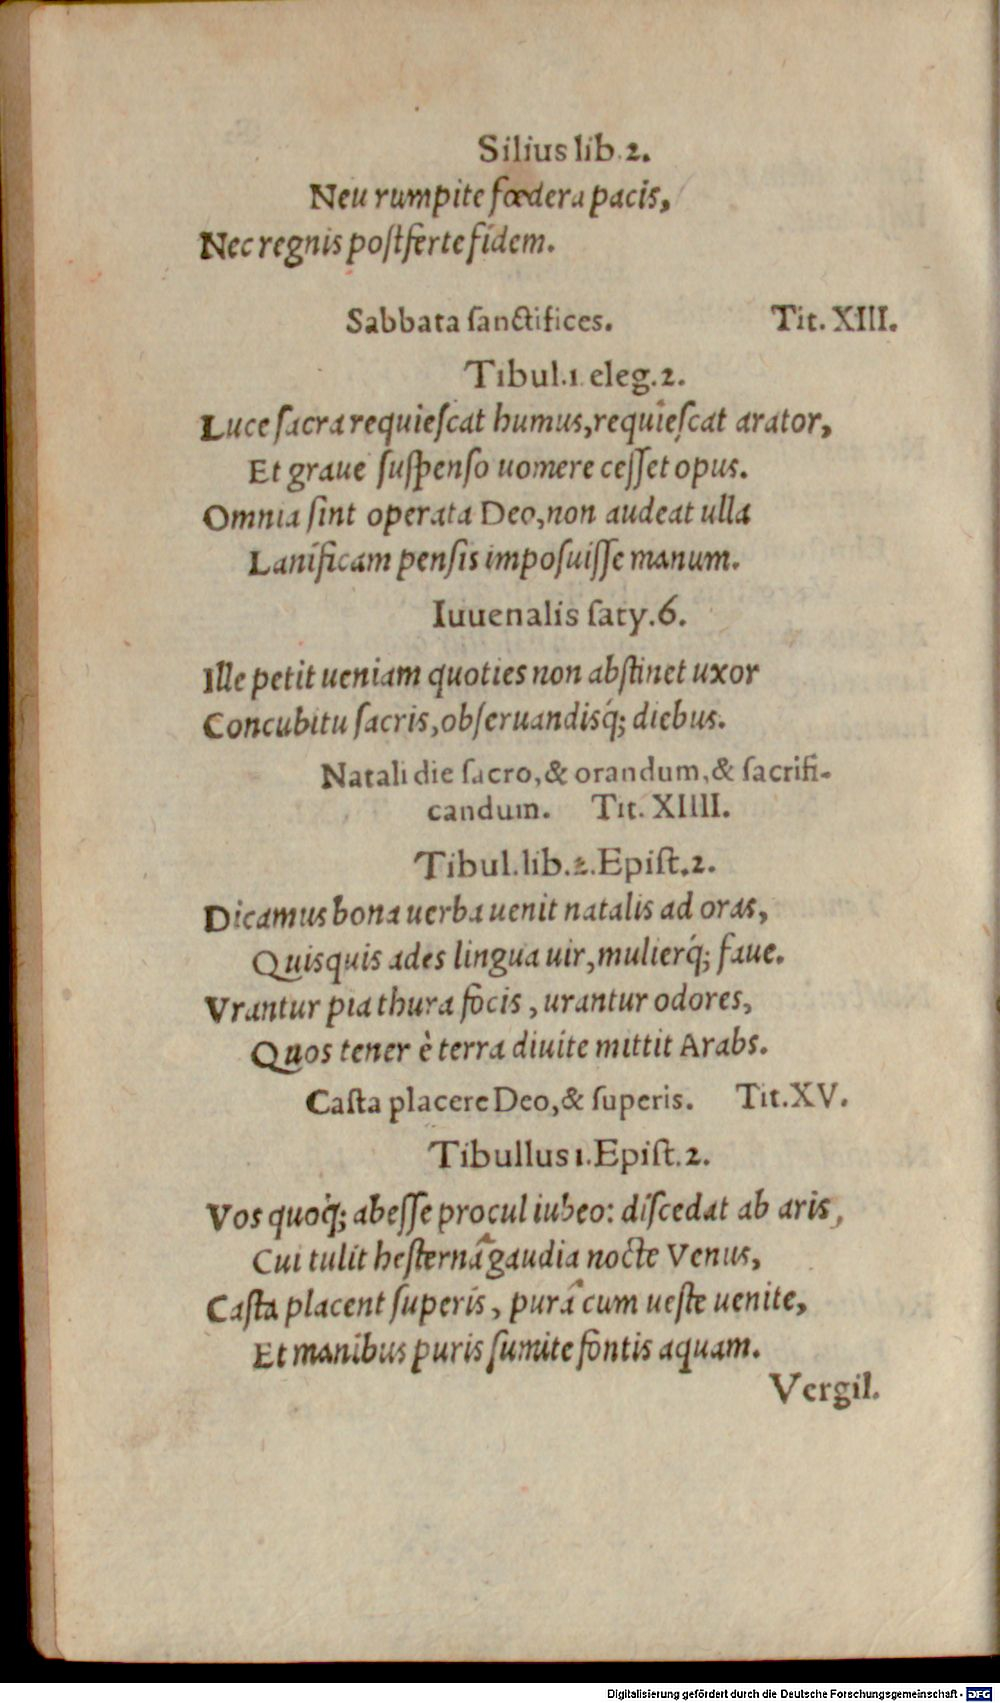 Silius lib. 2.
Neu rumpite fœdera pacis,
Nec regnis postferte fidem.
Sabbata sanctifices. Tit. XIII.
Tibul. 1 eleg. 2.
Luce sacra requiescat humus, requiescat arator,
Et graue suspenso uomere cesset opus.
Omnia sint operata Deo, non audeat ulla
Lanificam pensis imposuisse manum.
Iuuenalis saty. 6.
Ille petit ueniam quoties non abstinet uxor
Concubitu sacris, obseruandisq́; diebus.
Natali die sacro, & orandum, & sacrifi-
candum. Tit. XIIII.
Tibul. lib. 2. Epist. 2.
Dicamus bona uerba uenit natalis ad oras,
Quisquis ades lingua uir, mulierq́; faue.
Vrantur pia thura focis, urantur odores,
Quos tener è terra diuite mittit Arabs.
Casta placere Deo, & superis. Tit. XV.
Tibullus 1. Epist. 2.
Vos quoq́; abesse procul iubeo: discedat ab aris,
Cui tulit hesternâ gaudia nocte Venus,
Casta placent superis, purâ cum ueste uenite,
Et manibus puris sumite fontis aquam.
Vergil.
Digitalisierung gefördert durch die Deutsche Forschungsgemeinschaft - DFG